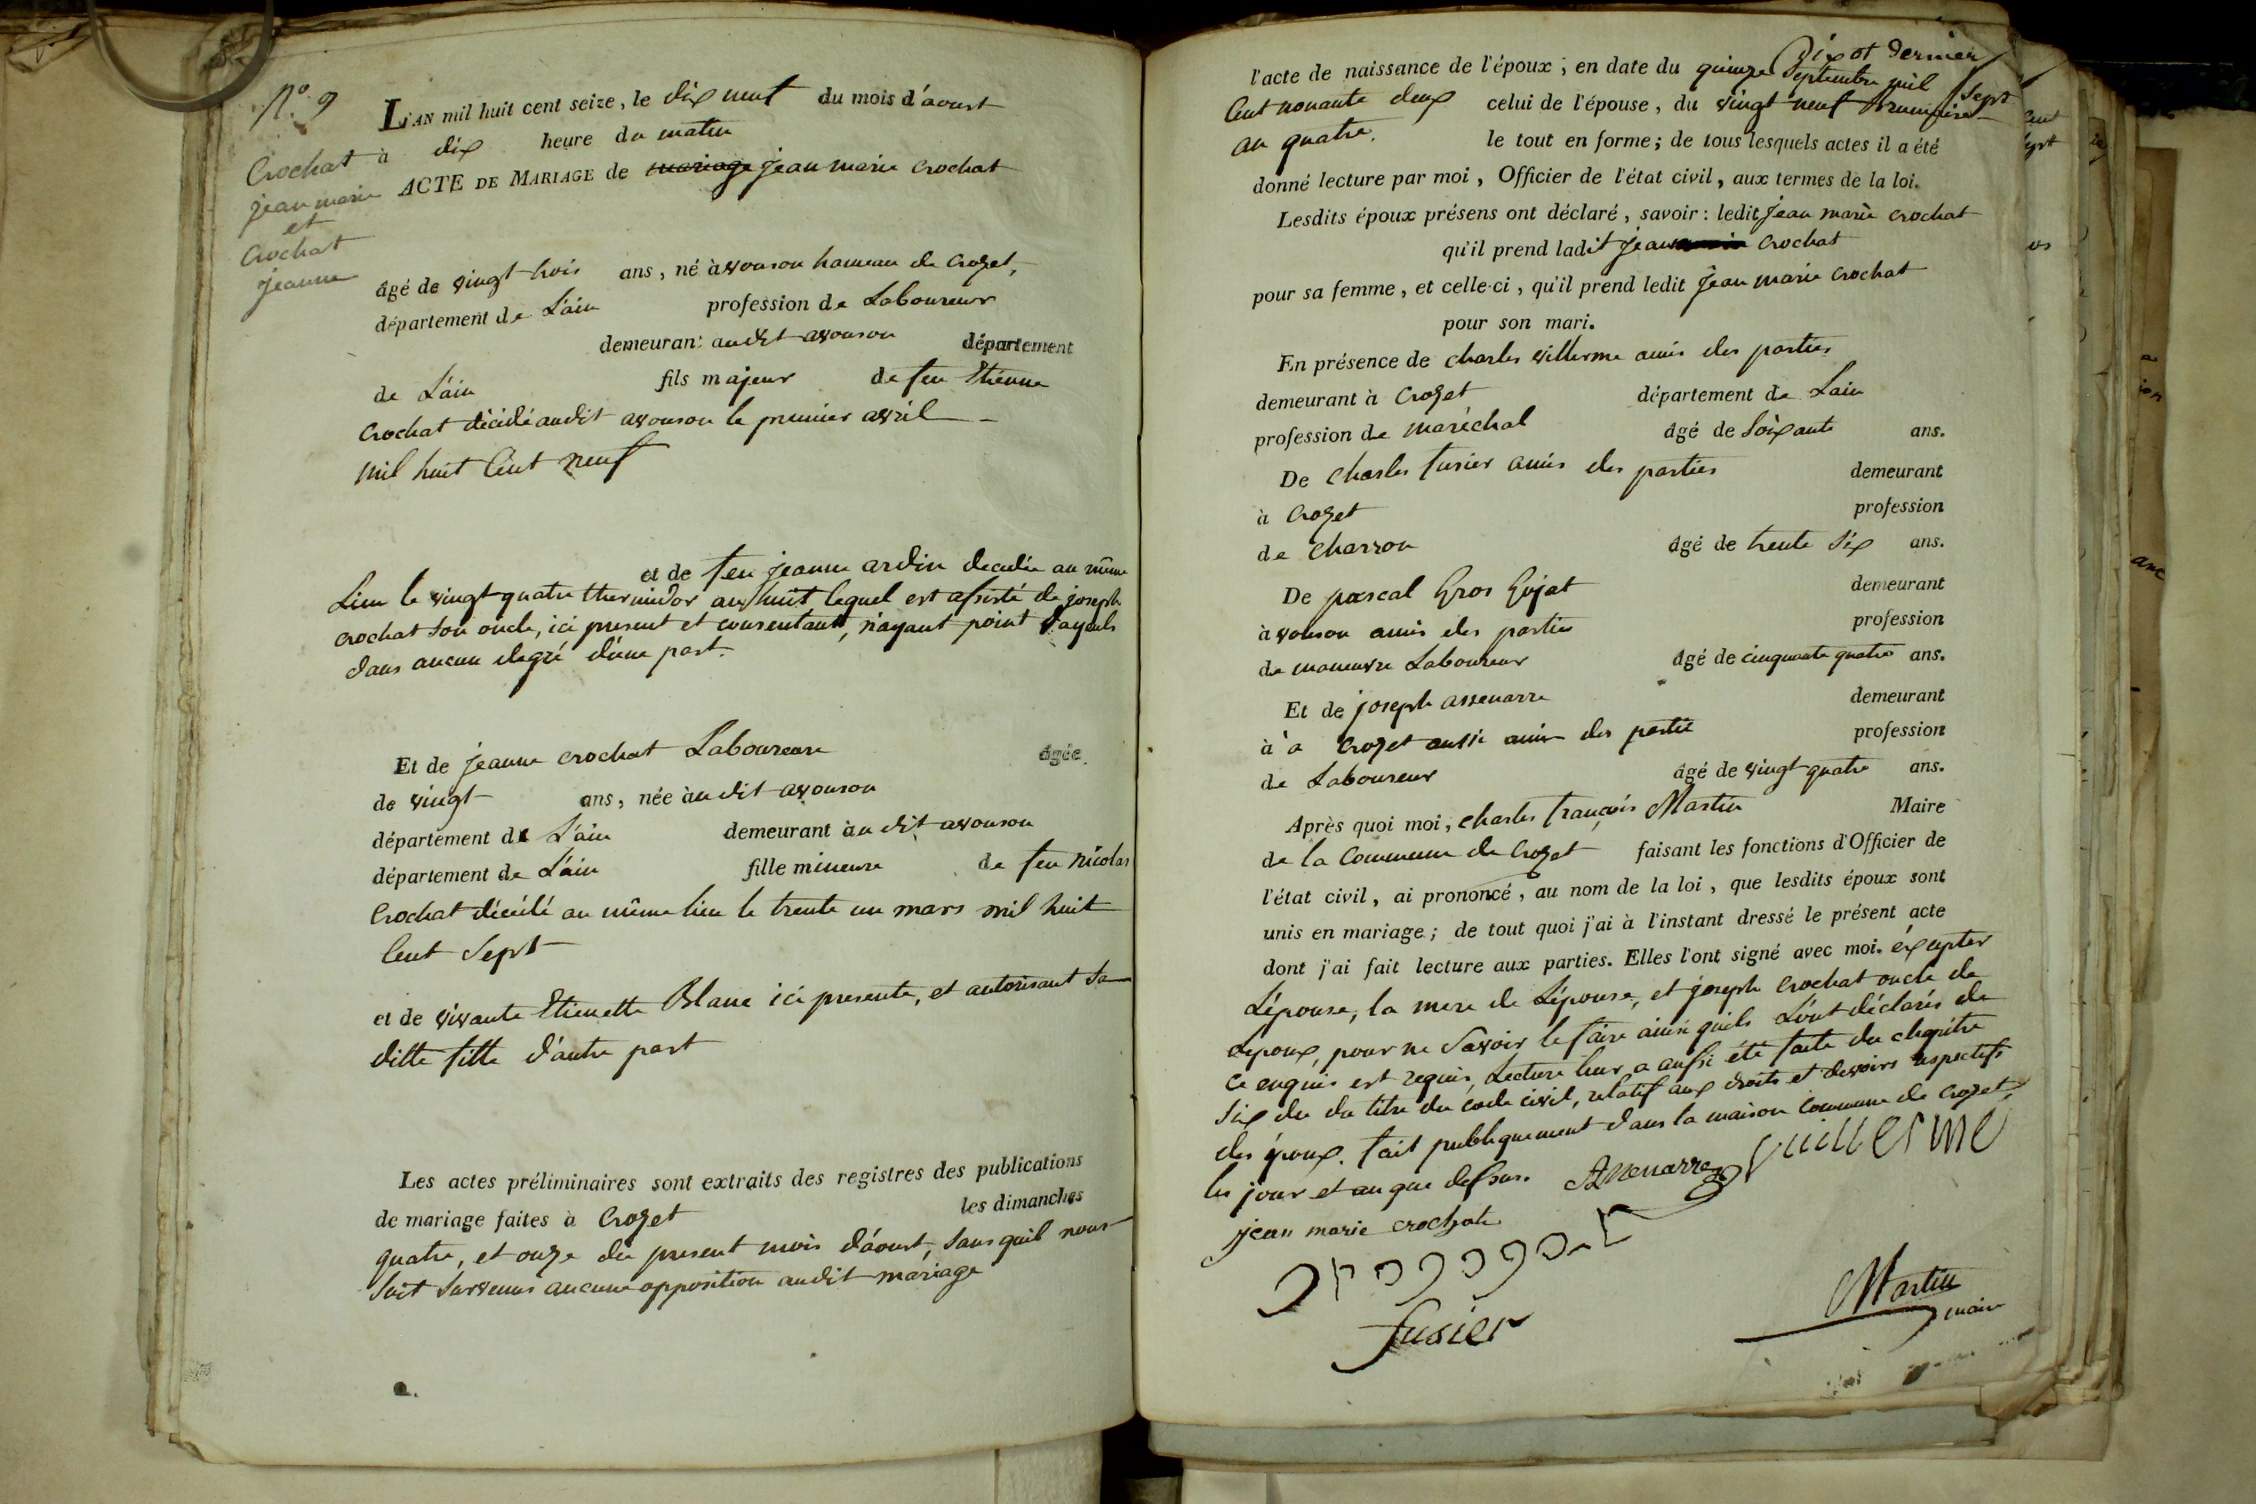 N.º 9
Crochat
jean marie
et
Crochat
jeanne
L'AN mil huit cent seize, le dix neuf du mois d'aoust
à dix heure du matin
ACTE DE MARIAGE de mariage jean marie Crochat
âgé de vingt trois ans, né à avouson hameau de Crozet,
département de L'ain profession de Laboureur
demeurant audit avouson département
de L'ain fils majeur de feu Etienne
Crochat décédé audit avouson le premier avril
mil huit Cent neuf
et de feu jeanne ardin decedée au même
Lieu le vingt quatre thermidor an huit lequel est assisté de joseph
crochat son oncle, ici present et consentant, n'ayant point d'ayeuls
dans aucun degré d'une part.
Et de jeanne crochat Laboureure âgée
de vingt ans, née audit avouson
département de L'ain demeurant audit avouson
département de L'ain fille mineure de feu nicolas
Crochat décédé au même lieu le trente un mars mil huit
Cent Sept
et de vivante Etienette Blanc ici presente, et autorisant Sa
ditte fille d'autre part
Les actes préliminaires sont extraits des registres des publications
de mariage faites à Crozet les dimanches
quatre, et onze du present mois d'aoust, sans quil nous
soit survenus aucune opposition audit mariage
l'acte de naissance de l'époux, en date du quinze Septembre mil Sept
Cent nonante deux celui de l'épouse, du vingt neuf Brumaire
an quatre. le tout en forme; de tous lesquels actes il a été
donné lecture par moi, Officier de l'état civil, aux termes de la loi.
Lesdits époux présens ont déclaré, savoir: ledit jean marie crochat
qu'il prend ladit jeanne Crochat
pour sa femme, et celle-ci, qu'il prend ledit jean marie Crochat
pour son mari.
En présence de charles villerme amis des parties
demeurant à Crozet département de Lain
profession de maréchal âgé de Soixante ans.
De Charles fusier amis des parties demeurant
à Crozet profession
de Charron âgé de trente Six ans.
De pascal Gros Gojat demeurant
à vouson amis des parties profession
de manuvre Laboureur âgé de cinquante quatre ans.
Et de joseph assenarre demeurant
à a Crozet aussi amis des partie profession
de Laboureur âgé de vingt quatre ans.
Après quoi moi, charles françois Martin Maire
de la Commune de Crozet faisant les fonctions d'Officier de
l'état civil, ai prononcé, au nom de la loi, que lesdits époux sont
unis en mariage; de tout quoi j'ai à l'instant dressé le présent acte
dont j'ai fait lecture aux parties. Elles l'ont signé avec moi. éxcepter
L'épouse, la mere de L'épouse, et joseph Crochat oncle de
Lepoux, pour ne Savoir le faire ainsi quils L'ont déclarés de
ce enquis est requis, Lecture leur a aussi été faite du chapitre
Six du du titre du code civil, relatif aux droits et devoirs respectifs
des époux. fait publiquement dans la maison Commune de Crozet,
les jour et an que dessus. Assenarre vuillerme
jean marie crochat
fusier
Martin
maire